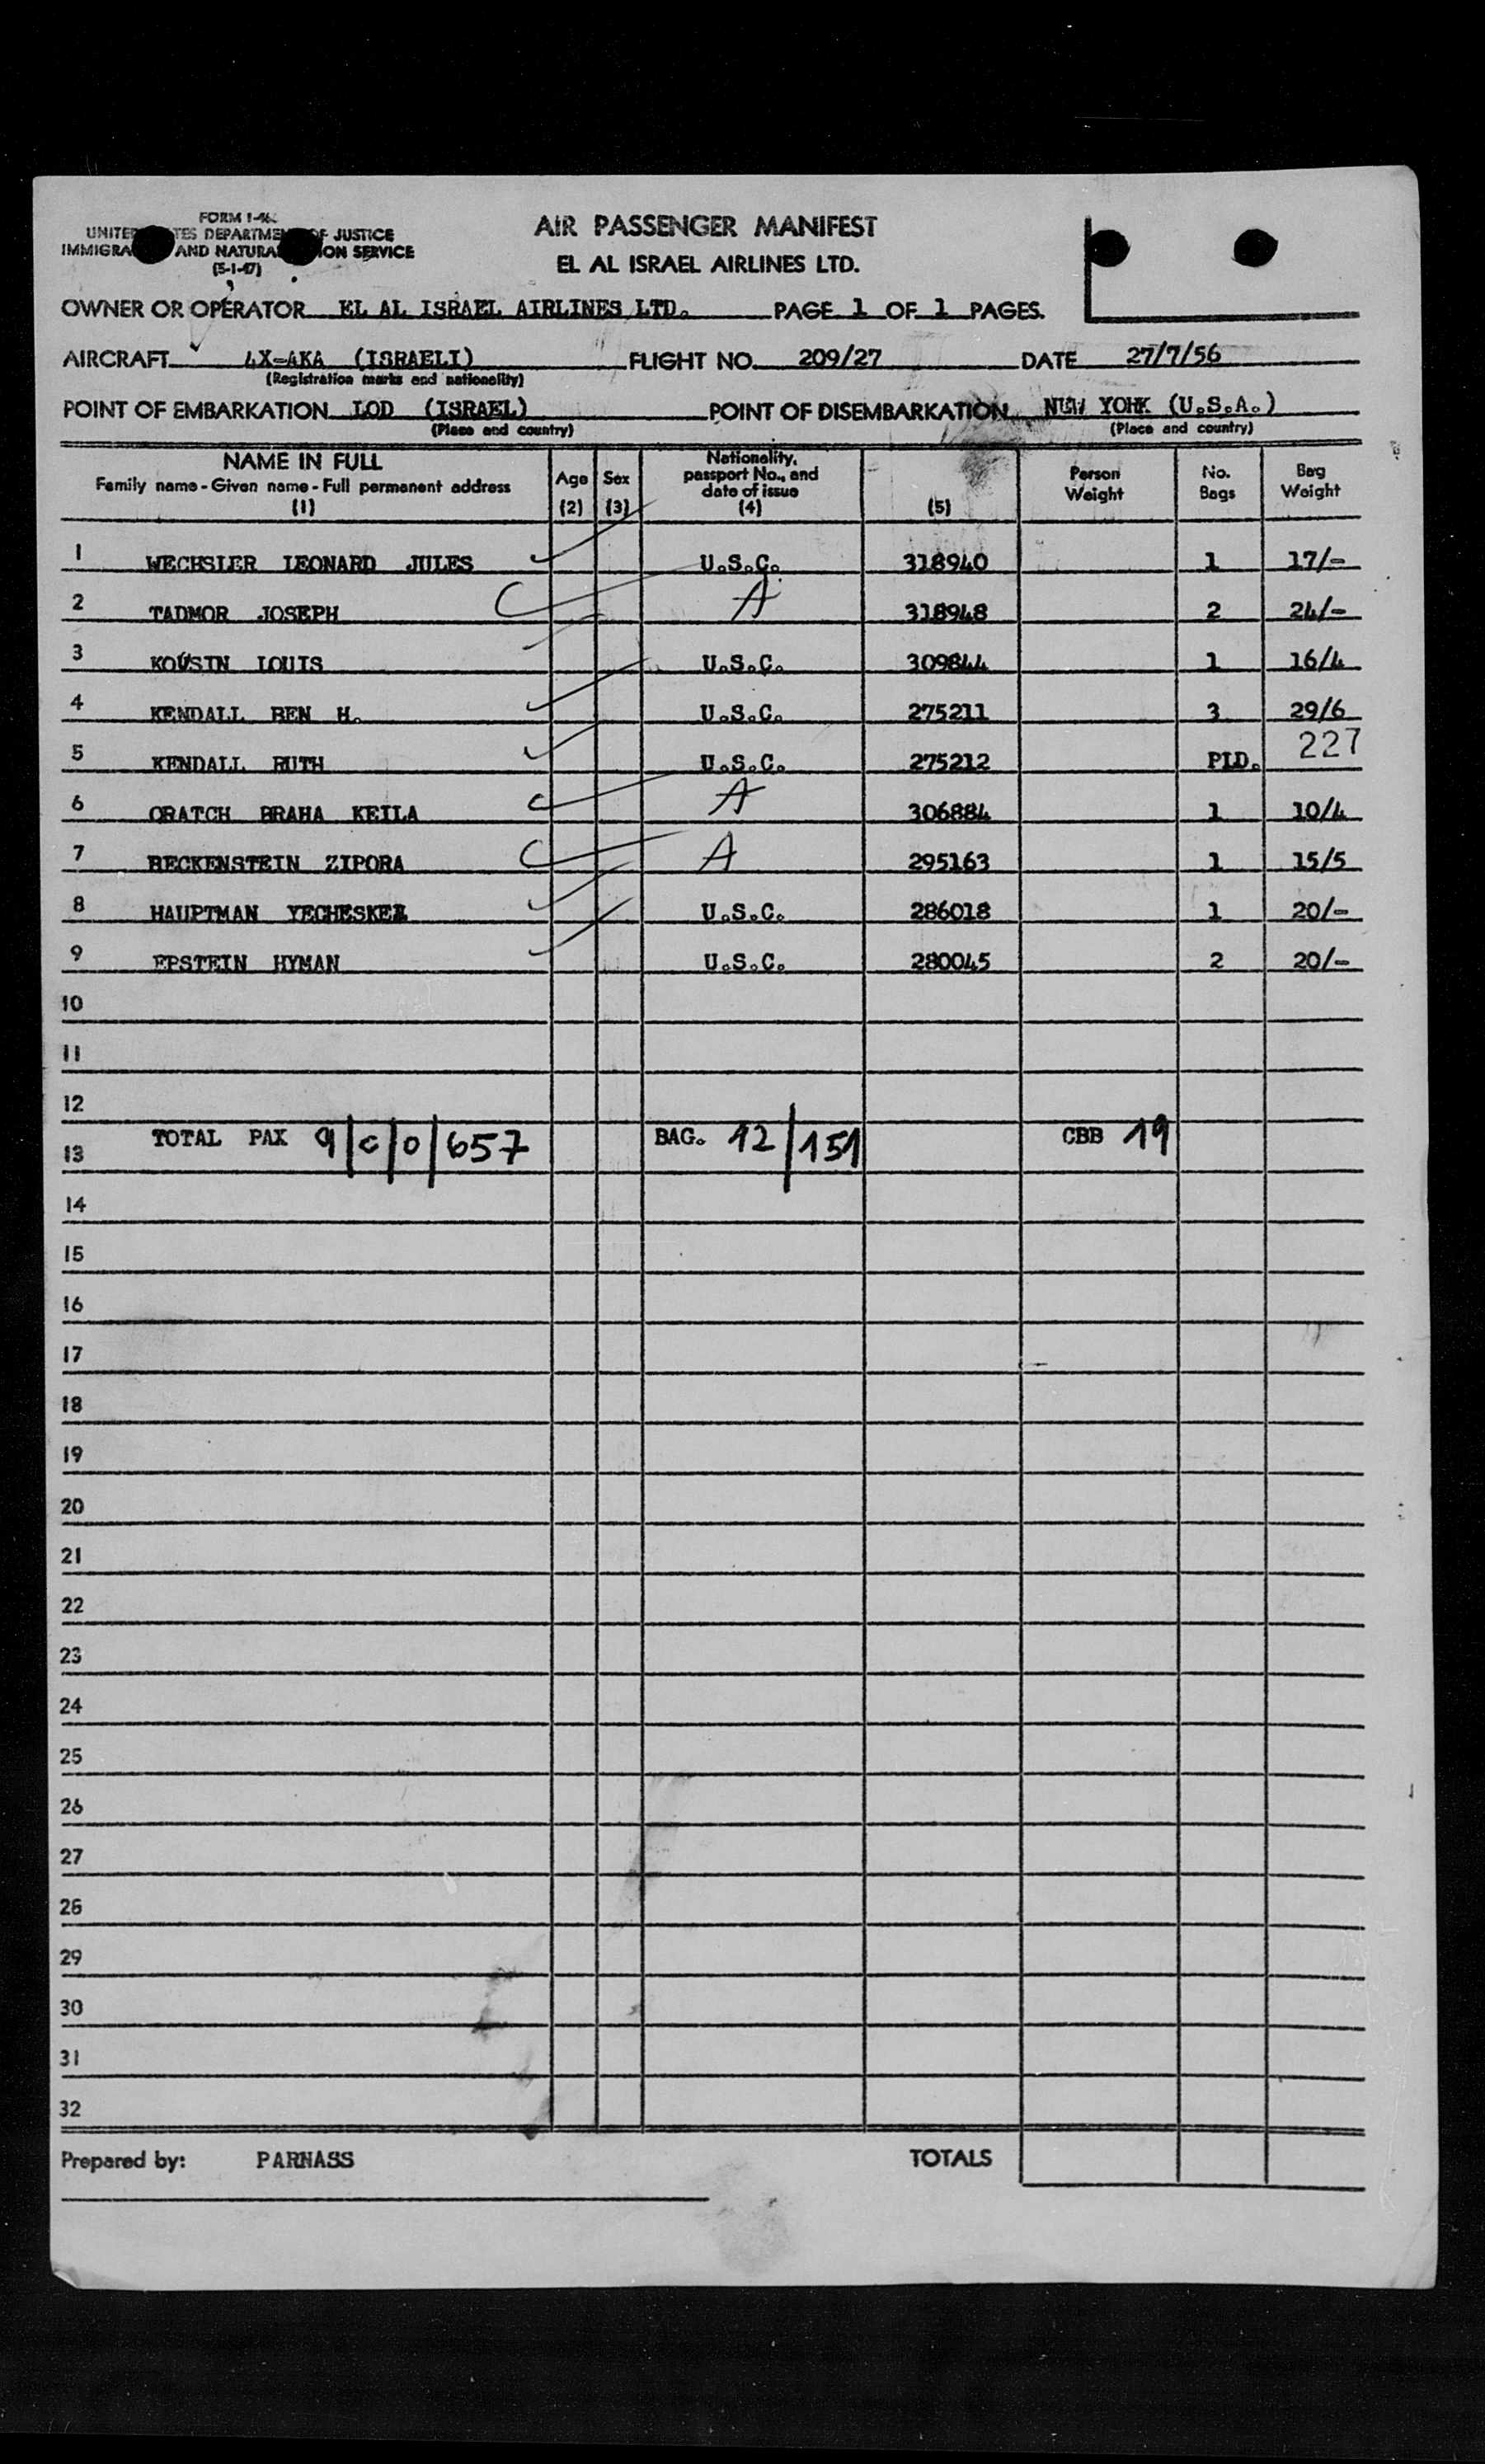 FORM I-
UNITED STATES DEPARTMENT OF JUSTICE
IMMIGRATION AND NATURALIZATION SERVICE
(5-1-47)
AIR PASSENGER MANIFEST
EL AL ISRAEL AIRLINES LTD.
OWNER OR OPERATOR EL AL ISRAEL AIRLINES LTD. PAGE 1 OF 1 PAGES.
AIRCRAFT 4X-AKA (ISRAELI) FLIGHT NO. 209/27 DATE 27/7/56
(Registration marks and nationality)
POINT OF EMBARKATION LOD (ISRAEL) POINT OF DISEMBARKATION NEW YORK (U.S.A.)
(Place and country) (Place and country)
NAME IN FULL
Family name - Given name - Full permanent address
(1)
Age
(2)
Sex
(3)
Nationality,
passport No., and
date of issue
(4)
(5)
Person
Weight
No.
Bags
Bag
Weight
1 WECHSLER LEONARD JULES U.S.C. 318940 1 17/-
2 TADMOR JOSEPH A 318948 2 24/-
3 KOUSIN LOUIS U.S.C. 309844 1 16/4
4 KENDALL BEN H. U.S.C. 275211 3 29/6
5 KENDALL RUTH U.S.C. 275212 PLD. 227
6 ORATCH BRAHA KEILA A 306884 1 10/4
7 BECKENSTEIN ZIPORA A 295163 1 15/5
8 HAUPTMAN YECHESKEL U.S.C. 286018 1 20/-
9 EPSTEIN HYMAN U.S.C. 280045 2 20/-
10
11
12
13 TOTAL PAX 9/0/0/657 BAG. 12/151 CBB 19
14
15
16
17
18
19
20
21
22
23
24
25
26
27
28
29
30
31
32
Prepared by: PARNASS TOTALS